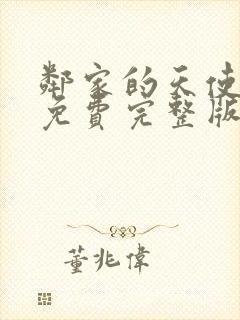 鄰家的天使
免費完整版
董兆偉